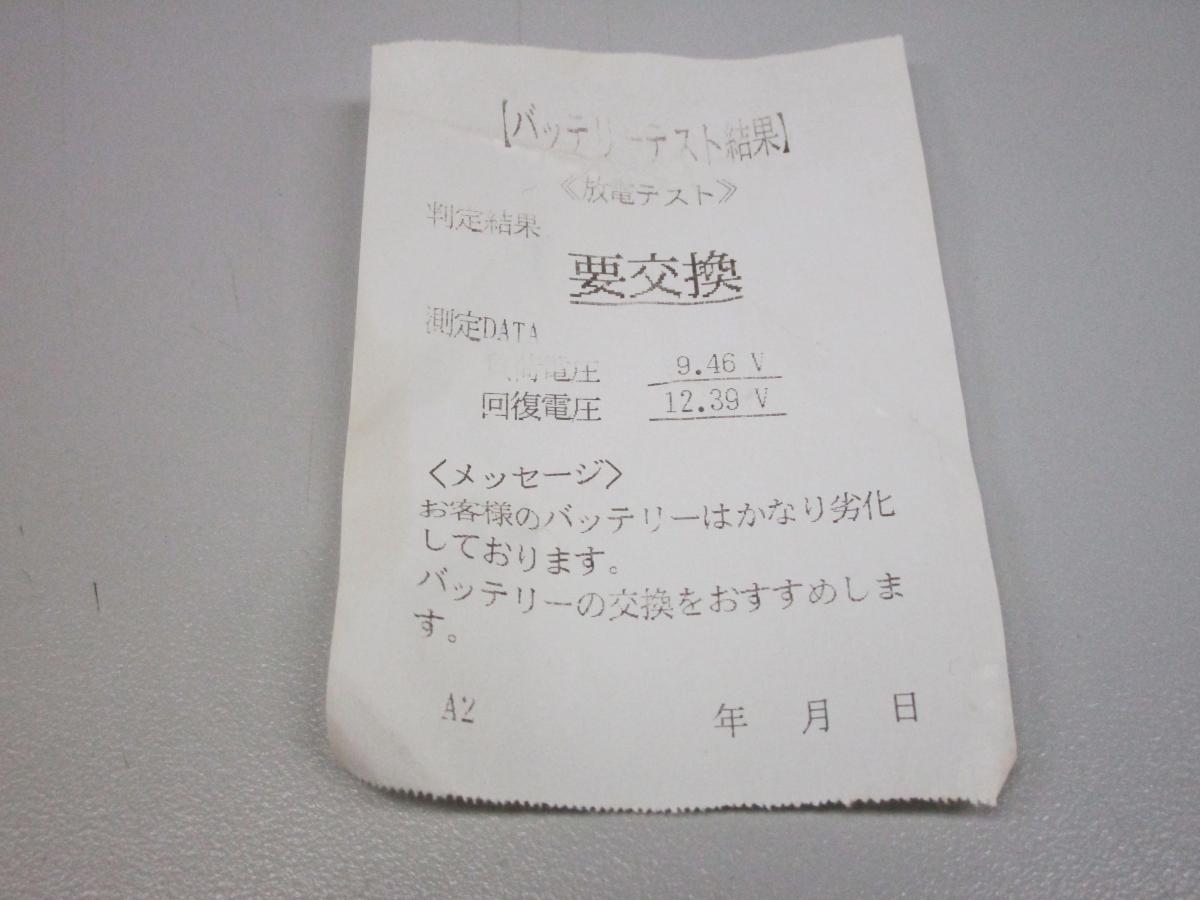 【バッテリーテスト結果】
《放電テスト》
判定結果
要交換
測定DATA
負荷電圧 9.46 V
回復電圧 12.39 V
〈メッセージ〉
お客様のバッテリーはかなり劣化
しております。
バッテリーの交換をおすすめしま
す。
A2 年 月 日